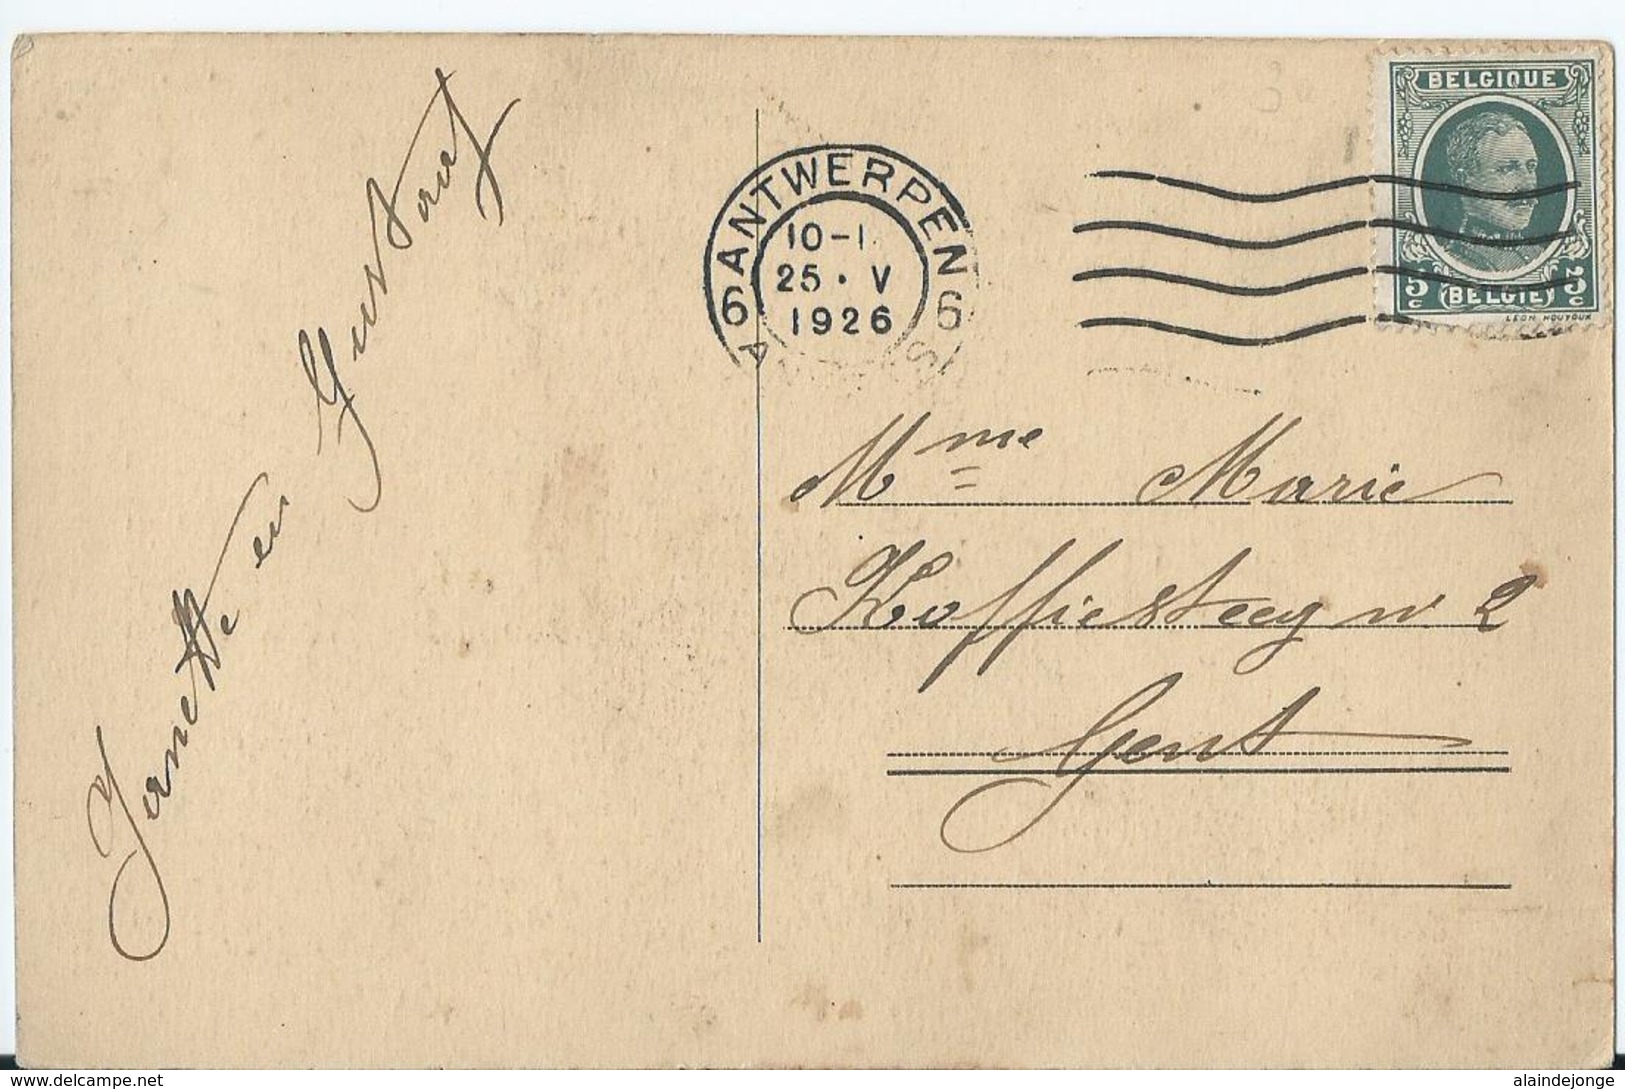 Janette en Gustaaf
BELGIQUE
5 c (BELGIE) 5 c
LEON HOUYOUX
ANTWERPEN
6 6
10-1
25 · V
1926
Mme Marie
Koffiesteeg n 2
Gent
www.delcampe.net
alaindejonge